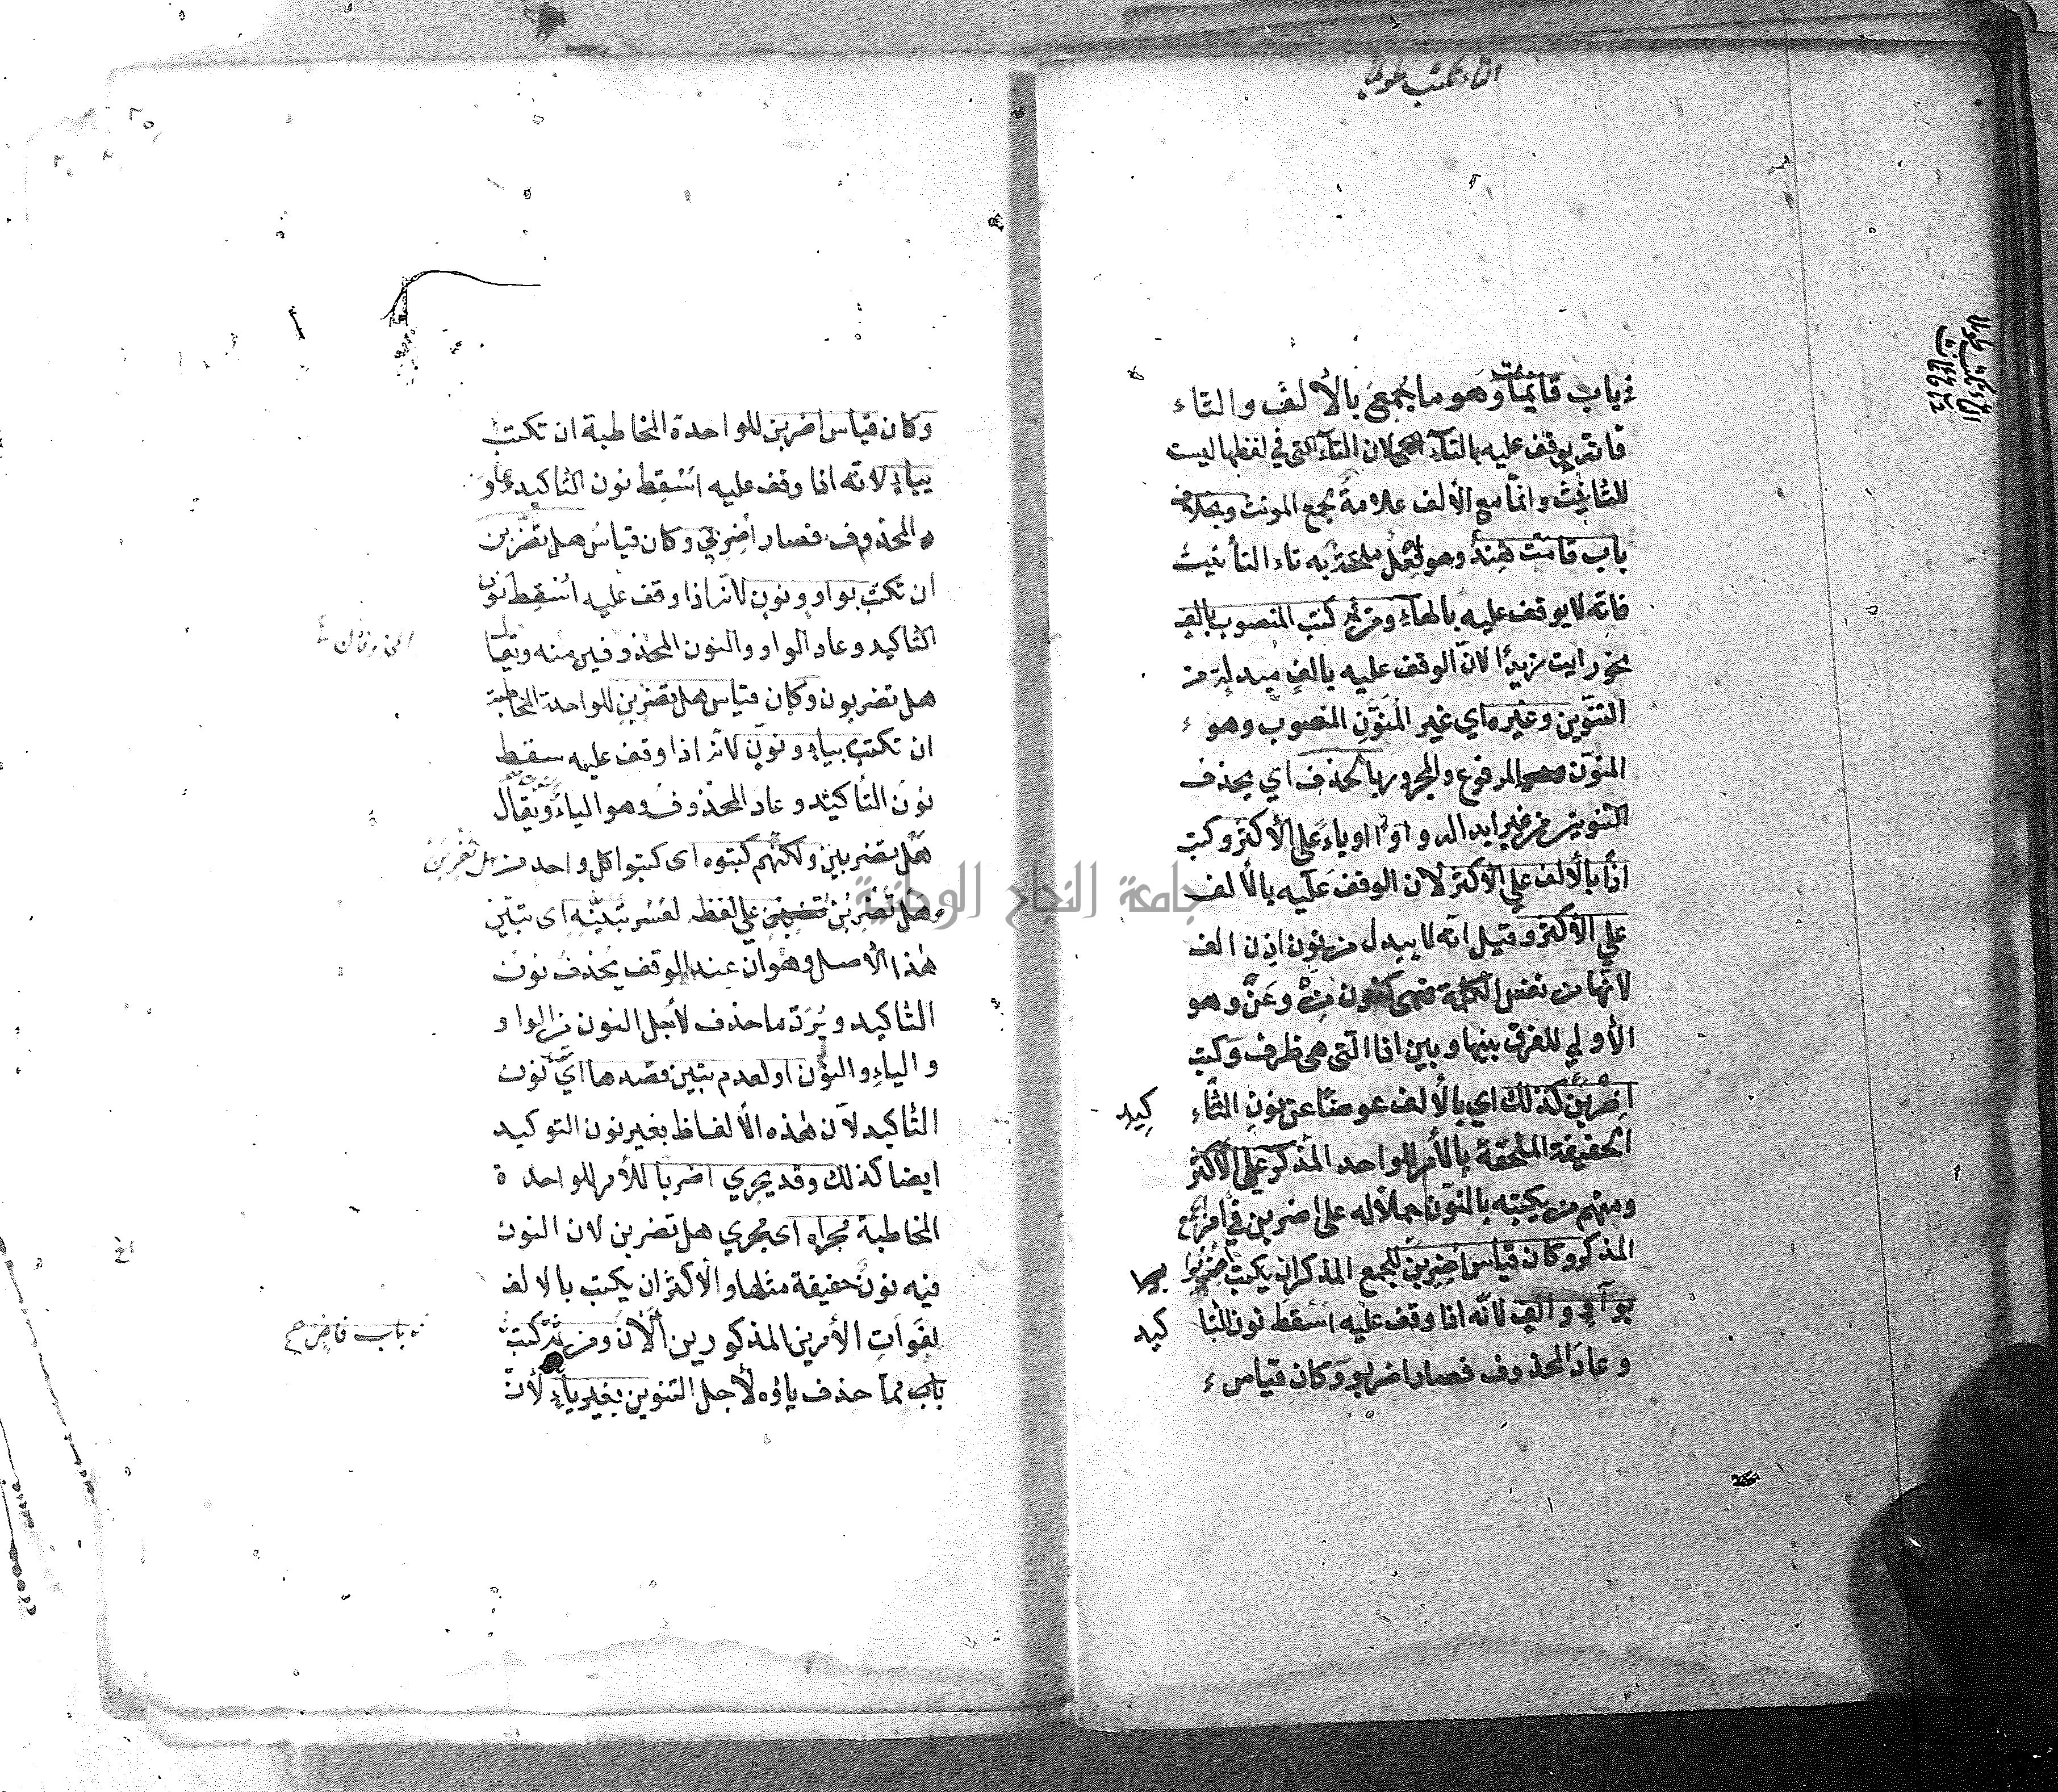 باب قايمات وهو ما جُمِعَ بالألف والتاء
فانه يوقف عليه بالتآء لان التآء التى في لفظها ليست
للتانيث وانما مع الألف علامةُ جمع المونث وبخلاف
باب قامت هند وهو فعل ملحقة به تاء التأنيث
فانه لا يوقف عليه بالهاء ومن ثم كتب المنصوب بالف
نحو رايت زيدًا لانّ الوقف عليه بالف مبدلة من
التنوين وغيره اي غير المنَوّن المنصوب وهو
المنوّن المرفوع والمجرور بالحذف اي بحذف
التنوين من غير ابداله واوًا او ياءً على الأكثر وكتب
اذًا بالألف على الأكثر لان الوقف عليه بالألف
على الأكثر وقيل انه لا يبدل من نون اذن الف
لانها من نفس الكلمة فهى كنون مِنْ وعَنْ وهو
الأولي للفرق بينها وبين اذا التى هى ظرف وكتب
اضربن كذلك اي بالألف عوضًا عن نون التأ كيد
الخفيفة الملحقة بالأمر للواحد المذكر على الأكثر
ومنهم من يكتبه بالنون حملا له على اضربن في امر الجمع
المذكر وكان قياس اضربن للجمع المذكر ان يكتب اضربوا
بواوٍ والفٍ لانّه اذا وقف عليه اسْقط نون التا كيد
وعادَ المحذوف فصار اضربوا وكان قياس
وكان قياس اضربن للواحدة المخاطبة ان تكتب
بياءٍ لانّه اذا وقف عليه اسْقِط نون التاكيد وعاد
المحذوف فصار اضْرِبي وكان قياسُ هل تضربن
ان تكتب بواو ونون لانه اذا وقف عليه اسْقِط نون
التاكيد وعاد الواو والنون المحذوفين منه ويقال
المحذوفان
هل تضربون وكان قياس هل تضربن للواحدة المخاطبة
ان تكتب بياءٍ ونون لانه اذا وقف عليه سقط
نونَ التأكيد وعادَ المحذوفُ وهو الياءُ ويقال
هل تضربين ولكنهم كتبوه اى كتبوا كل واحد من هل تضربن
وهل تضربن على لفظه لعُسر تبَيّنه اى تبين
هٰذا الأصل وهُو ان عند الوقف يحذف نون
التّاكيد ويُرَدّ ما حذف لأجل النون من الواو
والياءِ والنون او لعدم تبيّن قصدها اي نون
التّاكيد لأن هٰذه الألفاظ بغير نون التوكيد
ايضا كذلك وقد يجري اضربا للأمر للواحدة
المخاطبة مُجراه اى مُجري هل تضربن لان النون
فيه نونٌ خفيفة مثلها والأكثر ان يكتب بالالف
لفَوَاتِ الأمرين المذكورين الآن ومن ثم كتب
باب قاضٍ
باب مما حذف ياؤه لأجل التنوين بغير ياءٍ لأنّ
جامعة النجاح الوطنية